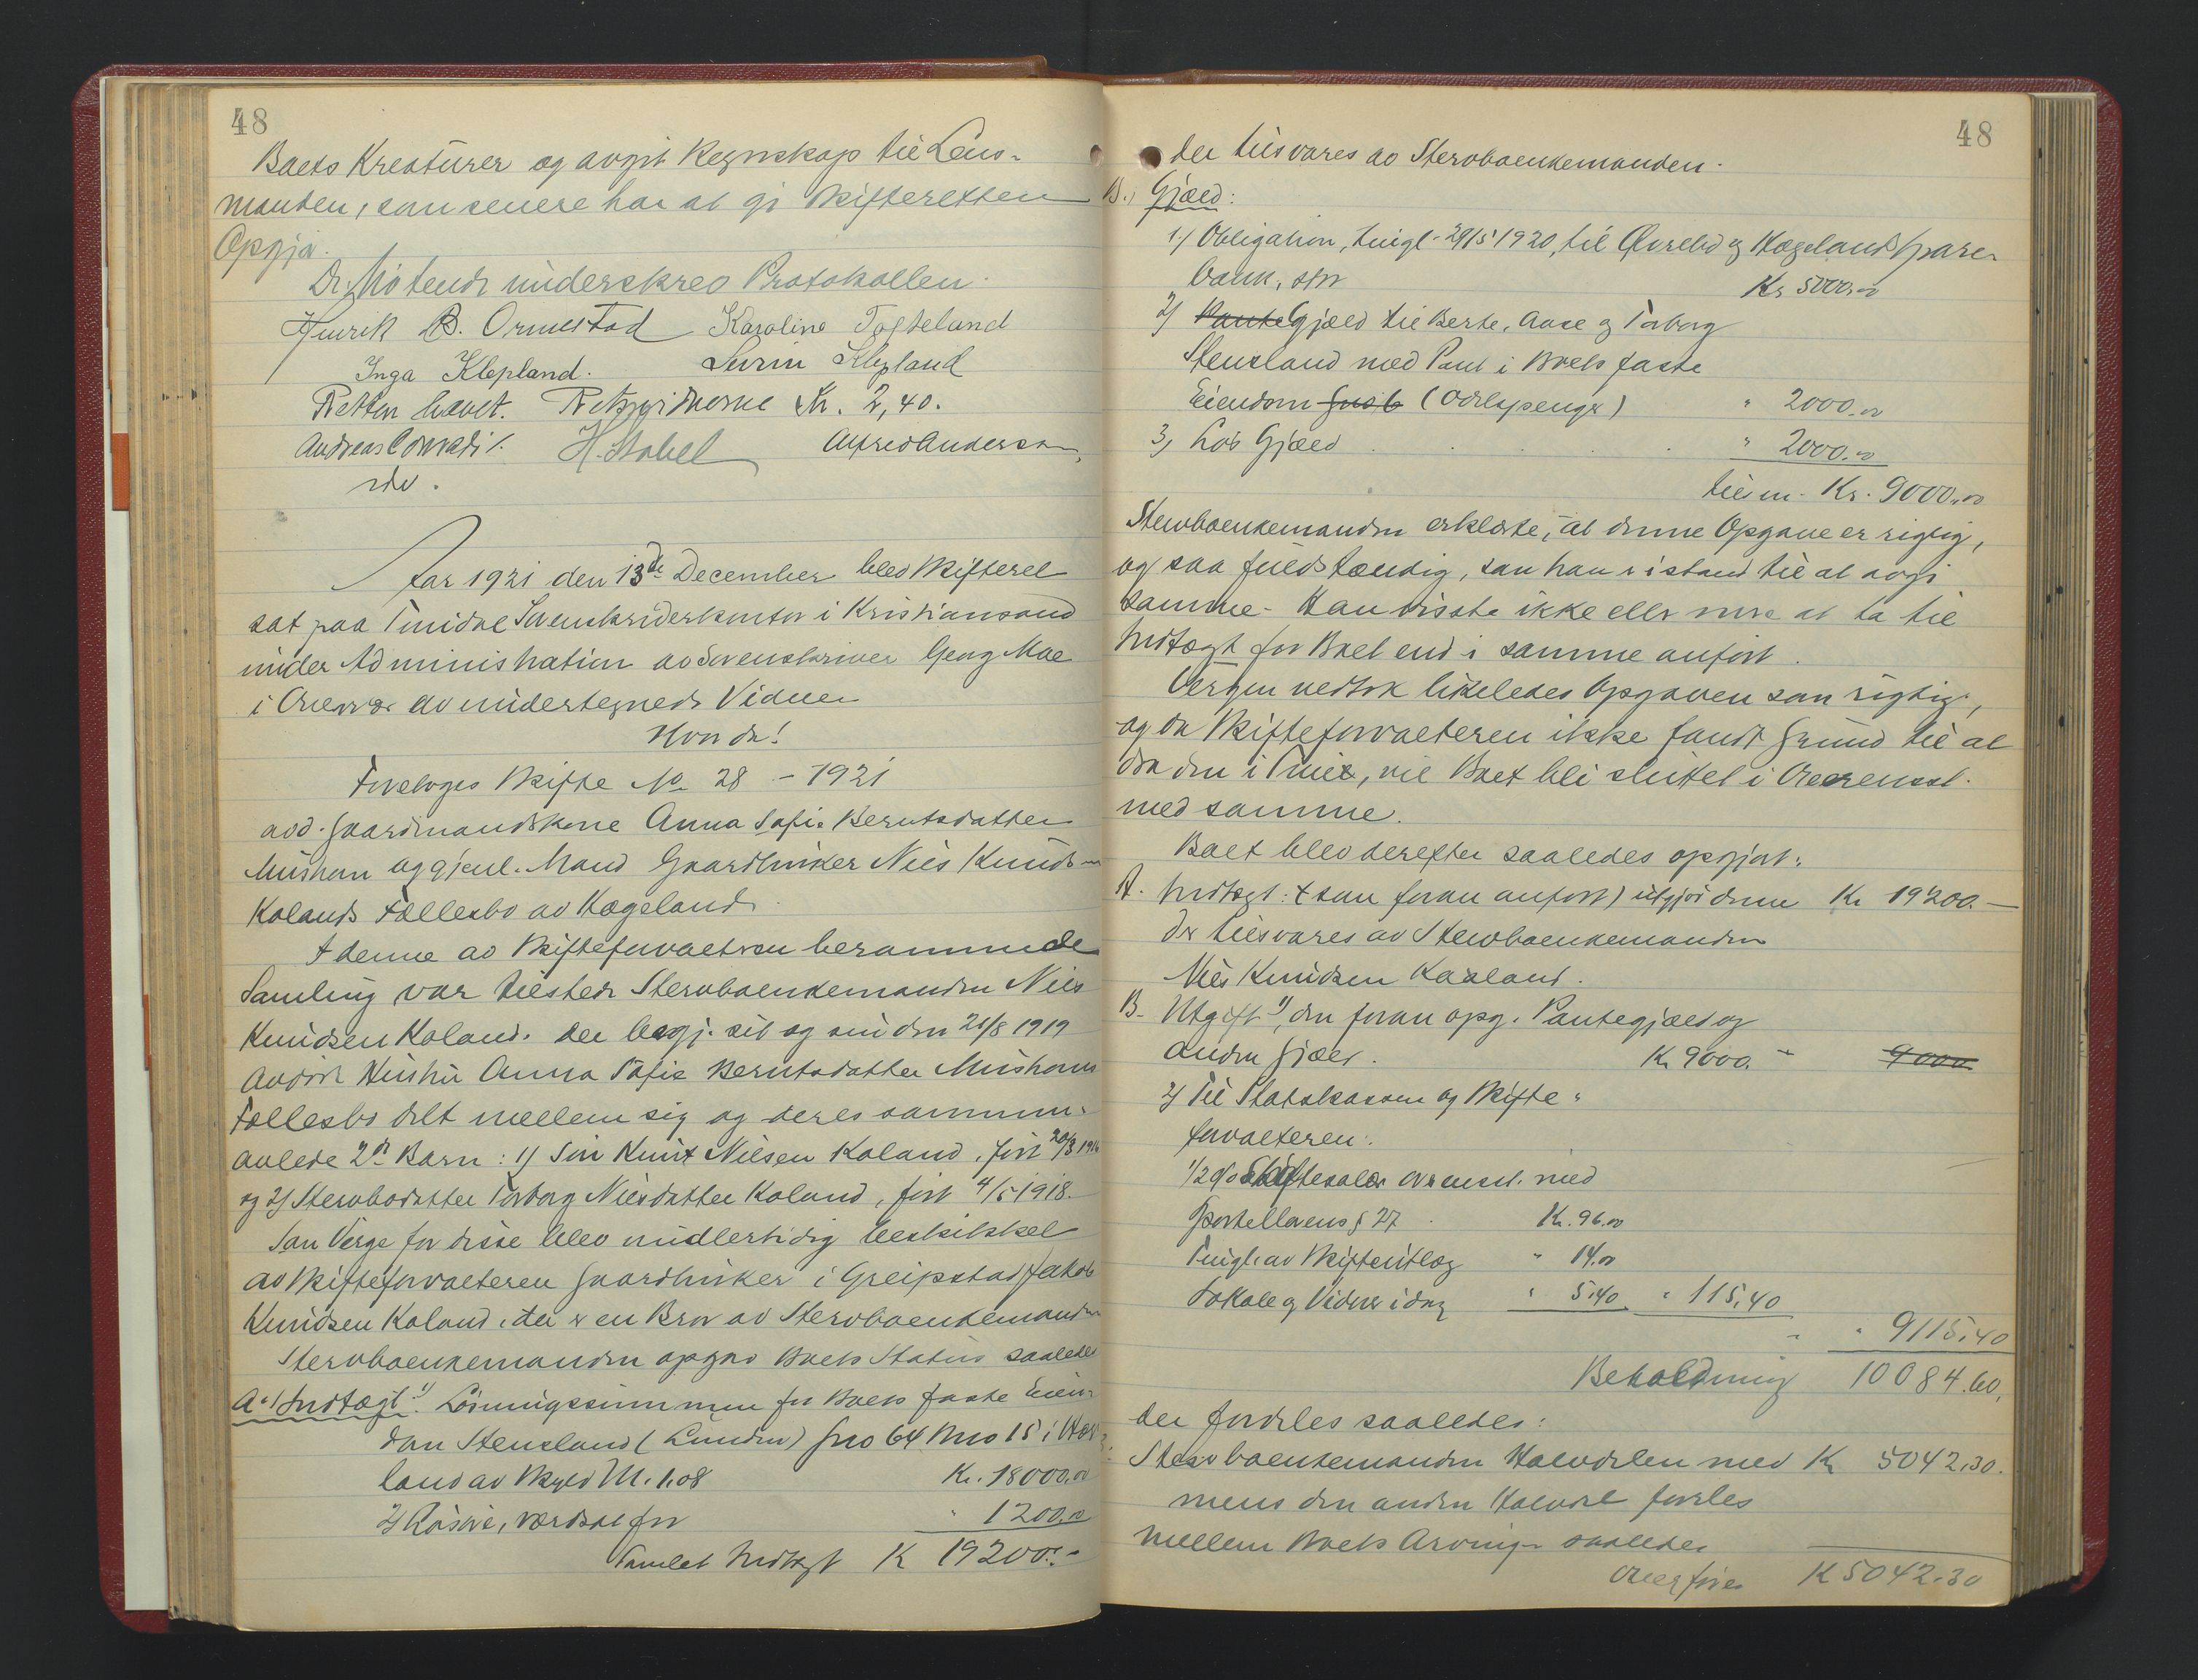 48
Boets Kreaturer og avgit Regnskap til Lens-
manden, som senere har at gi Skifteretten
Opgjør.
De Møtende underskrev Protokollen.
Henrik B. Ormestad Karoline Togteland
Inga Klepland. Klepland
Retten hævet. Retsvidnerne Kr. 2,40.
Andreas Conradi /. H. Stabel Alfred Andersen,
Aar 1921 den 13de December blev Skifteret
sat paa Sorenskriverkontor i Kristiansand
under Administration av Sorenskriver Georg Moe
i Overvær av undertegnede Vidner
Hvorda!
Foreløpes Skifte No 28 - 1921
avd. Gaardmandskone Anna Sofie Berntsdatter
og gjenl. Mand Gaardbruker Nils Knudsen
Kolands Fællesbo av Hægeland.
I denne av Skifteforvalteren berammede
Samling var tilstede Stervboenkemanden Nils
Knudsen Koland. der begj. sit og sin den 20/8 1919
avdøde Hustru Anna Sofie Berntsdatter
Fællesbo delt mellem sig og deres sammen-
avlede 2de Barn: 1) Søn Knut Nilsen Koland, født 20/8 1916
og 2) Stervbodatter Torborg Nilsdatter Koland, født 4/5 1918.
Som Verge for disse blev midlertidig beskikket
av Skifteforvalteren Gaardbruker i Greipstad Jakob
Knudsen Koland, der er en Bror av Stervboenkemanden
Stervboenkemanden opgav Boets Status saaledes
A.) Indtægt: 1) Løsningssummen for Boets faste Eien-
dom Stensland (Lunden) Gno 64 Bno 15 i Hæge-
land av Skyld M. 1.08 Kr. 18000,00
2) Løsøre, værdsat for " 1200,00
Samlet Indtægt K 19200.-
48
der tilsvares av Stervboenkemanden.
B., Gjæld:
1.) Obligation, tingl. 29/5 1920, til Øvrebø og Hægeland Spare-
bank, stor Kr 5000,00
2) Pante Gjæld til Berte, Aase og Torborg
Stensland med Pant i Boets faste
Eiendom (Odelspenger) " 2000.00
3, Løs Gjæld . . . . " 2000.00
tilsm. Kr. 9000,00
Stervboenkemanden erklærte, at denne Opgave er rigtig,
og saa fuldstændig, som han er istand til at avgi
samme. Han visste ikke eller mere at ta til
Indtægt for Boet end i samme anført.
Vergen vedtok likeledes Opgaven som rigtig,
og da Skifteforvalteren ikke fandt Grund til at
dra den i Tvil, vil Boet bli sluttet i Overensst.
med samme.
Boet blev derefter saaledes opgjort:
A. Indtægt: (som foran anført) utgjør denne Kr 19200.-
der tilsvares av Stervboenkemanden
Nils Knudsen Kaaland.
B. Utgift 1), den foran opg. Pantegjæld og
anden Gjæld. Kr 9000.- 9000
2) Til Statskassen og Skifte-
forvalteren:
1/2 % Skiftesalær overensst. med
Sportellovens § 27 . Kr. 96.00
Tingl. av Skifteutlæg " 14.00
Lokale og Vidner idag " 5,40 " 115,40
" " 9115,40
Beholdning 10084.60,
der fordeles saaledes:
Stervboenkemanden Halvdelen med Kr 5042,30.
mens den anden Halvdel fordeles
mellem Boets Arvinger saaledes
overføres K 5042.30